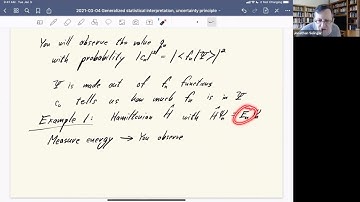 2021-03-04 Generalized statistical interpretation, uncertainty principle
You will observe the value qₙ
with probability |cₙ|² = |<fₙ|Ψ>|²
Ψ is made out of fₙ functions
cₙ tells us how much fₙ is in Ψ
Example 1: Hamiltonian Ĥ with Ĥψₙ = Eₙψₙ
Measure energy → You observe